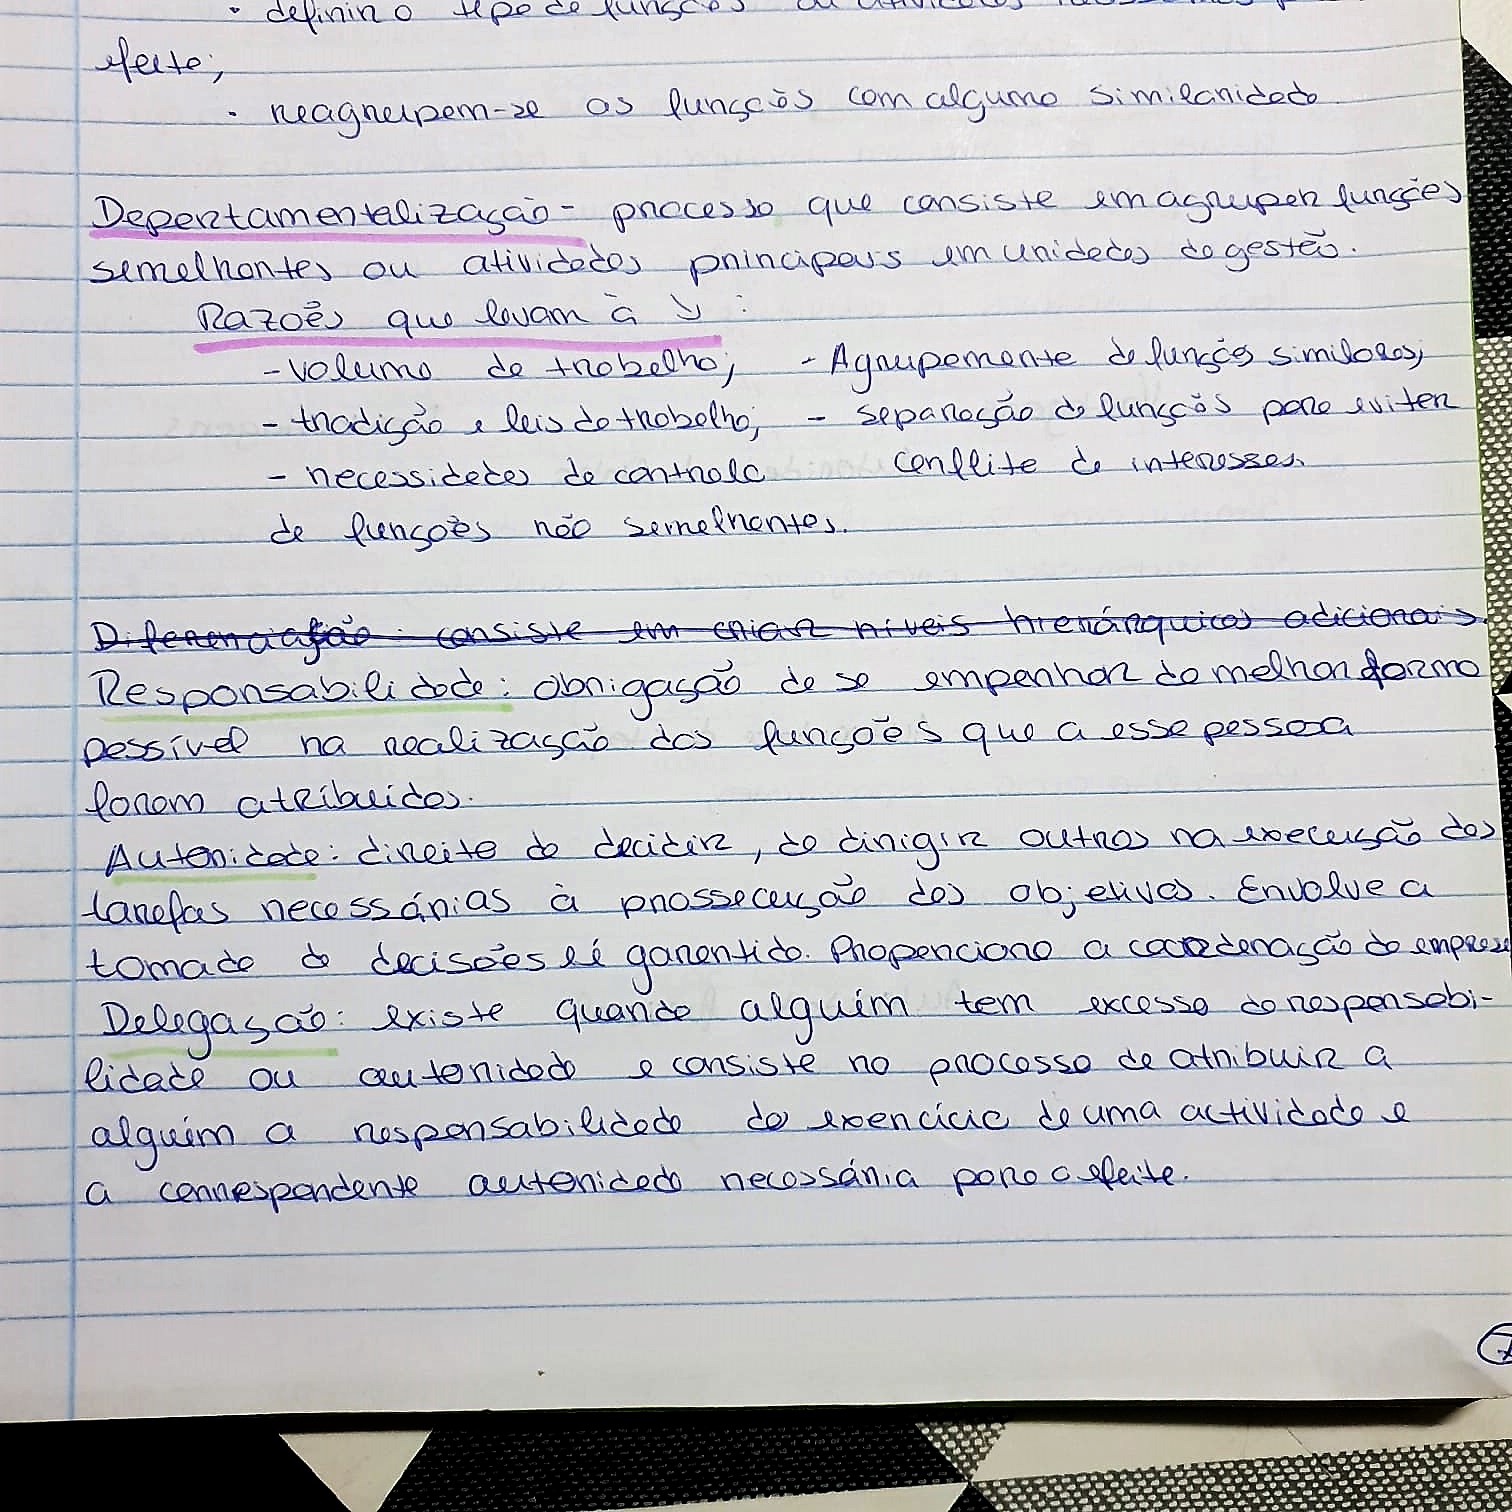 · definir o tipo de funções ou
efeito;
· reagrupem-se as funções com alguma similaridade
Departamentalização - processo que consiste em agrupar funções
semelhantes ou atividades principais em unidades de gestão.
Razões que levam à ↘ :
- volume de trabalho; - Agrupamento de funções similares;
- tradição e leis do trabalho; - separação de funções para evitar
- necessidades de controlo conflito de interesses.
de funções não semelhantes.
Diferenciação: consiste em criar níveis hierárquicos adicionais
Responsabilidade: obrigação de se empenhar da melhor forma
possível na realização das funções que a essa pessoa
foram atribuídas.
Autoridade: direito de decidir, de dirigir outros na execução das
tarefas necessárias à prossecução dos objetivos. Envolve a
tomada de decisões e é garantida. Proporciona a coordenação da empresa
Delegação: existe quando alguém tem excesso de responsabi-
lidade ou autoridade e consiste no processo de atribuir a
alguém a responsabilidade do exercício de uma actividade e
a correspondente autoridade necessária para o efeito.
7